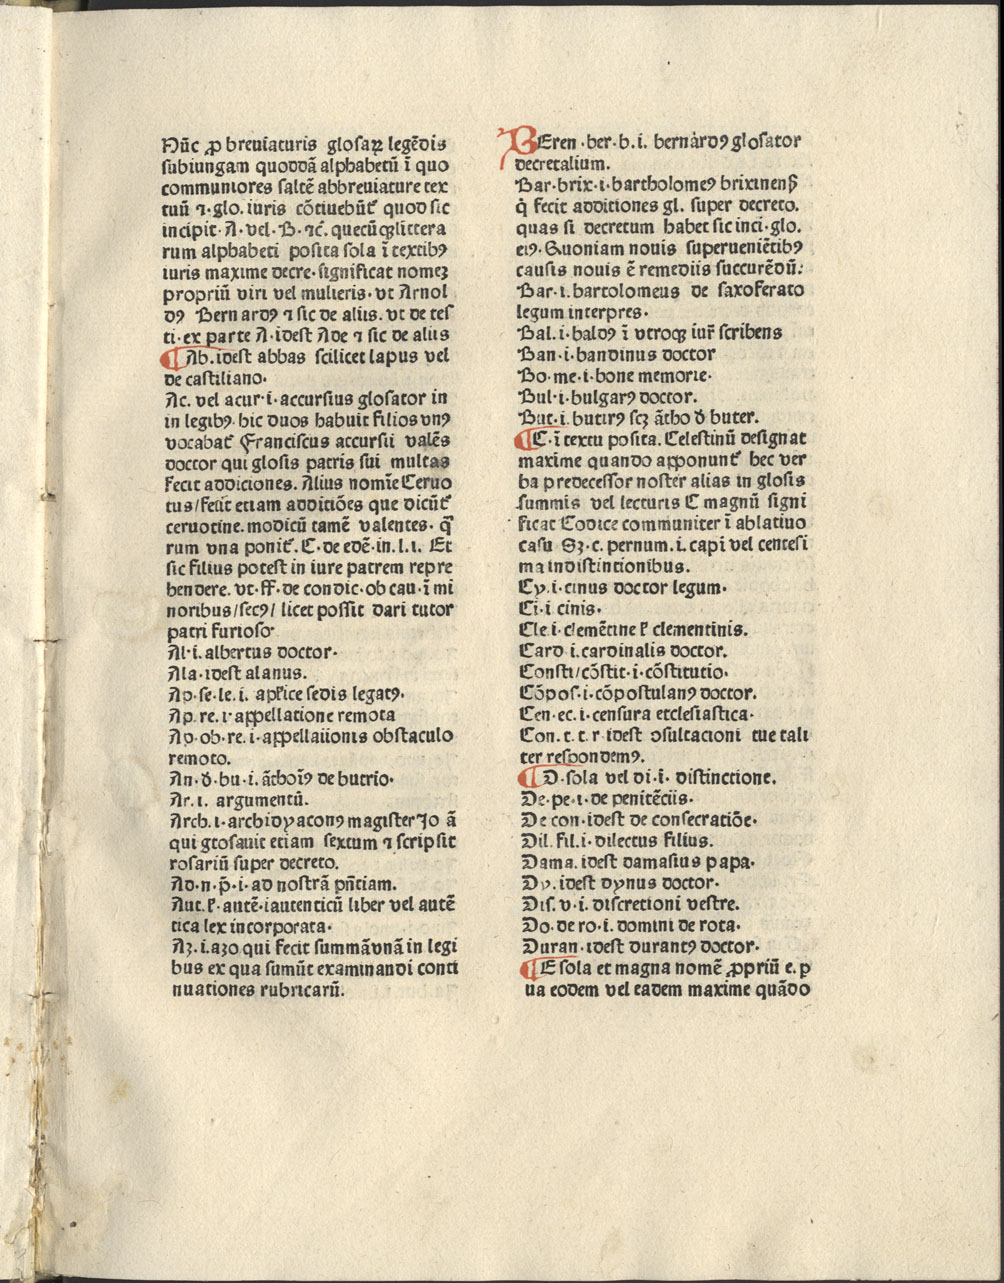 Nūc ꝓ breviaturis glosaꝝ legēdis
subiungam quoddā alphabetū ī quo
communiores saltē abbreviature tex
tuū ⁊·glo. iuris cōtiuebūt᷑ quod sic
incipit·A·vel·B·⁊c̄. quecūqꝫ littera
rum alphabeti posita sola ī textibꝰ
iuris maxime decre·significat nomeꝫ
propriū viri vel mulieris·vt Arnol
dꝰ Bernardꝰ ⁊ sic de aliis. vt de tes
ti·ex parte A·idest Ade ⁊ sic de aliis
¶ Ab.idest abbas scilicet lapus vel
de castiliano·
Ac. vel acur·i·accursius glosator in
in legibꝰ. hic duos habuit filios vnꝰ
vocabat᷑ Franciscus accursii valēs
doctor qui glosis patris sui multas
fecit addiciones. Alius nomīe Ceruo
tus/fecit etiam additiōes que dicūt᷑
ceruotine. modicū tamē valentes· q̄
rum vna ponit᷑. C·de edē·in.l.i. Et
sic filius potest in iure patrem repre
hendere. vt·ff·de condic·ob cau·ī mi
noribus/secꝰ/ licet possit dari tutor
patri furioso·
Al·i.albertus doctor·
Ala·idest alanus.
Ap·se·le.i. apl̄ice sedis legatꝰ.
Ap.re.i·appellatione remota
Ap·ob·re.i·appellaiionis obstaculo
remoto.
An·đ·bu·i.āthoīꝰ de butrio·
Ar.i. argumentū.
Arch.i·archidyaconꝰ magister Jo ā
qui gtosauit etiam sextum ⁊ scripsit
rosariū super decreto.
Ad·n·p̄·i·ad nostrā pn̄tiam.
Aut.ꝉ·autē·iautenticū liber vel autē
tica lex incorporata·
Aꝫ.i.azo qui fecit summā vnā in legi
bus ex qua sumūt examinandi conti
nuationes rubricarū.
BEren·ber·b.i. bernardꝰ glosator
decretalium.
Bar·brix·i·bartholomeꝰ brixinens̄
q̇ fecit additiones gl. super decreto.
quas si decretum habet sic inci·glo.
eiꝰ·Quoniam nouis superueniētibꝰ
causis nouis ē remediis succurēdū:
Bar·i.bartolomeus de saxoferato
legum interpres·
Bal.i·baldꝰ ī vtroqꝫ iur̄ scribens
Ban·i·bandinus doctor
Bo·me·i·bone memorie·
Bul·i·bulgarꝰ doctor.
But·i.butirꝰ scꝫ ātho đ buter.
¶ C·ī textu posita. Celestinū designat
maxime quando apponunt᷑ hec ver
ba predecessor noster alias in glosis
summis vel lecturis C magnū signi
ficat Codice communiter ī ablatiuo
casu Sꝫ·c·pernum.i.capi vel centesi
ma indistinctionibus.
Cy.i·cinus doctor legum·
Ci·i cinis·
Cle·i·clemētine ꝉ clementinis.
Card·i.cardinalis doctor.
Consti/cōstit·i·cōstitutio·
Cōpos·i·cōpostulanꝰ doctor.
Cen·ec·i·censura etclesiastica·
Con.t.t·r·idest ↄsultacioni tue tali
ter respondemꝰ.
¶ D·sola vel di·i· distinctione.
De·pe·i·de penitēciis·
De con·idest de consecratiōe·
Dil.fil.i·dilectus filius.
Dama.idest damasius papa·
Dy.idest dynus doctor·
Dis.v·i·discretioni vestre.
Do·de ro·i.domini de rota·
Duran·idest durantꝰ doctor·
¶ E sola et magna nomē ꝓpriū e.p
ua eodem vel eadem maxime quādo